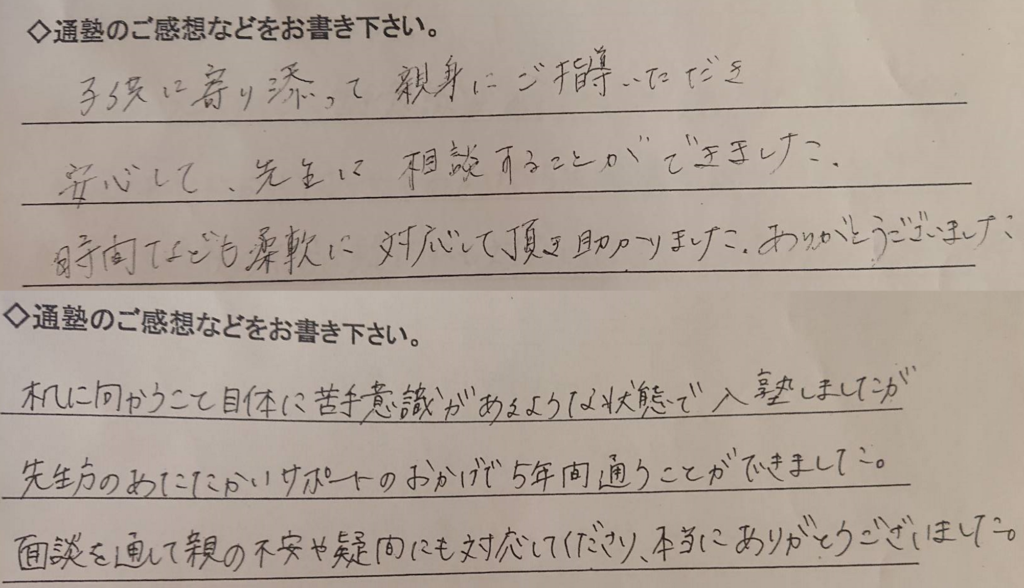 ◇通塾のご感想などをお書き下さい。
子供に寄り添って親身にご指導いただき
安心して、先生に相談することができました。
時間なども柔軟に対応して頂き助かりました。ありがとうございました
◇通塾のご感想などをお書き下さい。
机に向かうこと自体に苦手意識があるような状態で入塾しましたが
先生方のあたたかいサポートのおかげで5年間通うことができました。
面談を通して親の不安や疑問にも対応してくださり、本当にありがとうございました。